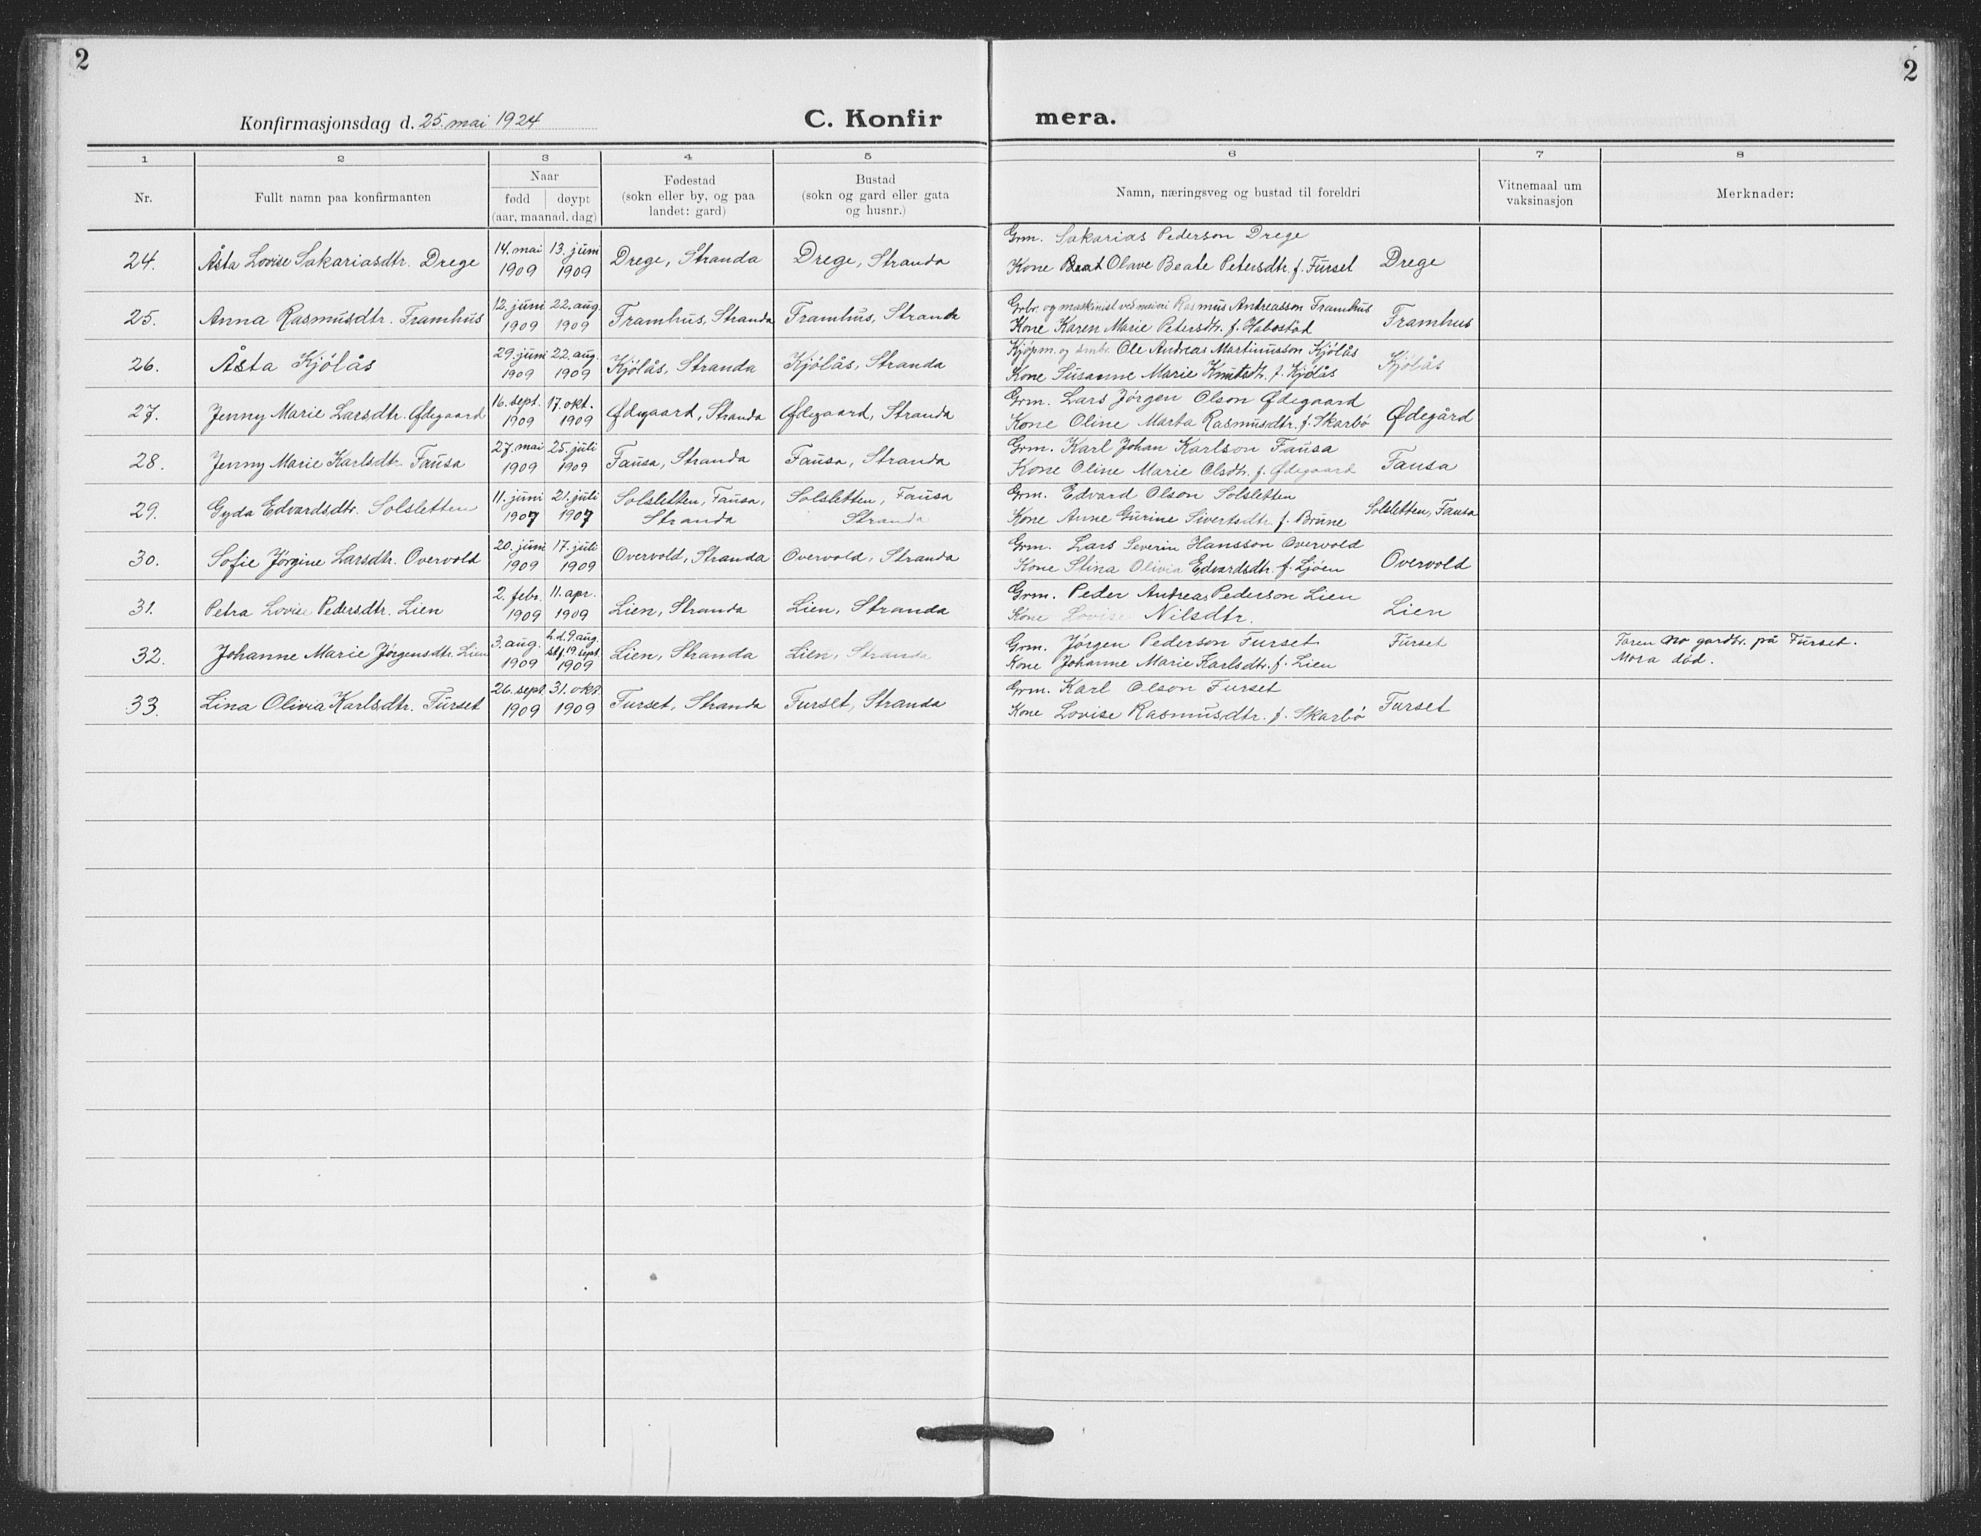 2
2
Konfirmasjonsdag d. 25. mai 1924
C. Konfir mera.
1 2 3 4 5 6 7 8
Nr.
Fullt namn paa konfirmanten
Naar
fødd døypt
(aar, maanad, dag)
Fødestad
(sokn eller by, og paa
landet: gard)
Bustad
(sokn og gard eller gata
og husnr.)
Namn, næringsveg og bustad til foreldri
Vitnemaal um
vaksinasjon
Merknader:
24. Åsta Lovise Sakariasdtr. Drege 14. mai 1909 13. juni 1909 Drege, Stranda Drege, Stranda
Grm. Sakarias Pederson Drege
Kone Beat Olave Beate Petersdtr. f. Furset Drege
25. Anna Rasmusdtr. Framhus 12. juni 1909 22. aug. 1909 Framhus, Stranda Framhus, Stranda
Grbr. og maskinist ved meieri Rasmus Andreasson Framhus
Kone Karen Marie Petersdtr. f. Habostad Framhus
26. Åsta Kjølås 29. juni 1909 22. aug. 1909 Kjølås, Stranda Kjølås, Stranda
Kjøpm. og smbr. Ole Andreas Martinusson Kjølås
Kone Susanne Marie Knutsdtr. f. Kjølås Kjølås
27. Jenny Marie Larsdtr. Ødegaard 16. sept. 1909 17. okt. 1909 Ødegaard, Stranda Ødegaard, Stranda
Grm. Lars Jørgen Olson Ødegaard
Kone Oline Marta Rasmusdtr. f. Skarbø Ødegård
28. Jenny Marie Karlsdtr. Fausa 27. mai 1909 25. juli 1909 Fausa, Stranda Fausa, Stranda
Grm. Karl Johan Karlson Fausa
Kone Oline Marie Olsdtr. f. Ødegaard Fausa
29. Gyda Edvardsdtr. Solsletten 11. juni 1907 21. juli 1907 Solsletten, Fausa, Stranda Solsletten, Fausa Stranda
Grm. Edvard Olson Solsletten
Kone Anne Gurine Sivertsdtr. f. Brune Solsletten, Fausa
30. Sofie Jørgine Larsdtr. Overvold 20. juni 1909 17. juli 1909 Overvold, Stranda Overvold, Stranda
Grm. Lars Severin Hansson Overvold
Kone Stina Olivia Edvardsdtr. f. Ljøen Overvold
31. Petra Lovise Pedersdtr. Lien 2. febr. 1909 11. apr. 1909 Lien, Stranda Lien, Stranda
Grm. Peder Andreas Pederson Lien
Kone Lovise Nilsdtr. Lien
32. Johanne Marie Jørgensdtr. Lien 3. aug. 1909 h. d. 9. aug. st. 19. sept. 1909 Lien, Stranda Lien, Stranda
Grm. Jørgen Pederson Furset Furset
Kone Johanne Marie Karlsdtr. f. Lien
Faren no gardbr. på Furset.
Mora død.
33. Lina Olivia Karlsdtr. Furset 26. sept. 1909 31. okt. 1909 Furset, Stranda Furset, Stranda
Grm. Karl Olson Furset
Kone Lovise Rasmusdtr. f. Skarbø Furset